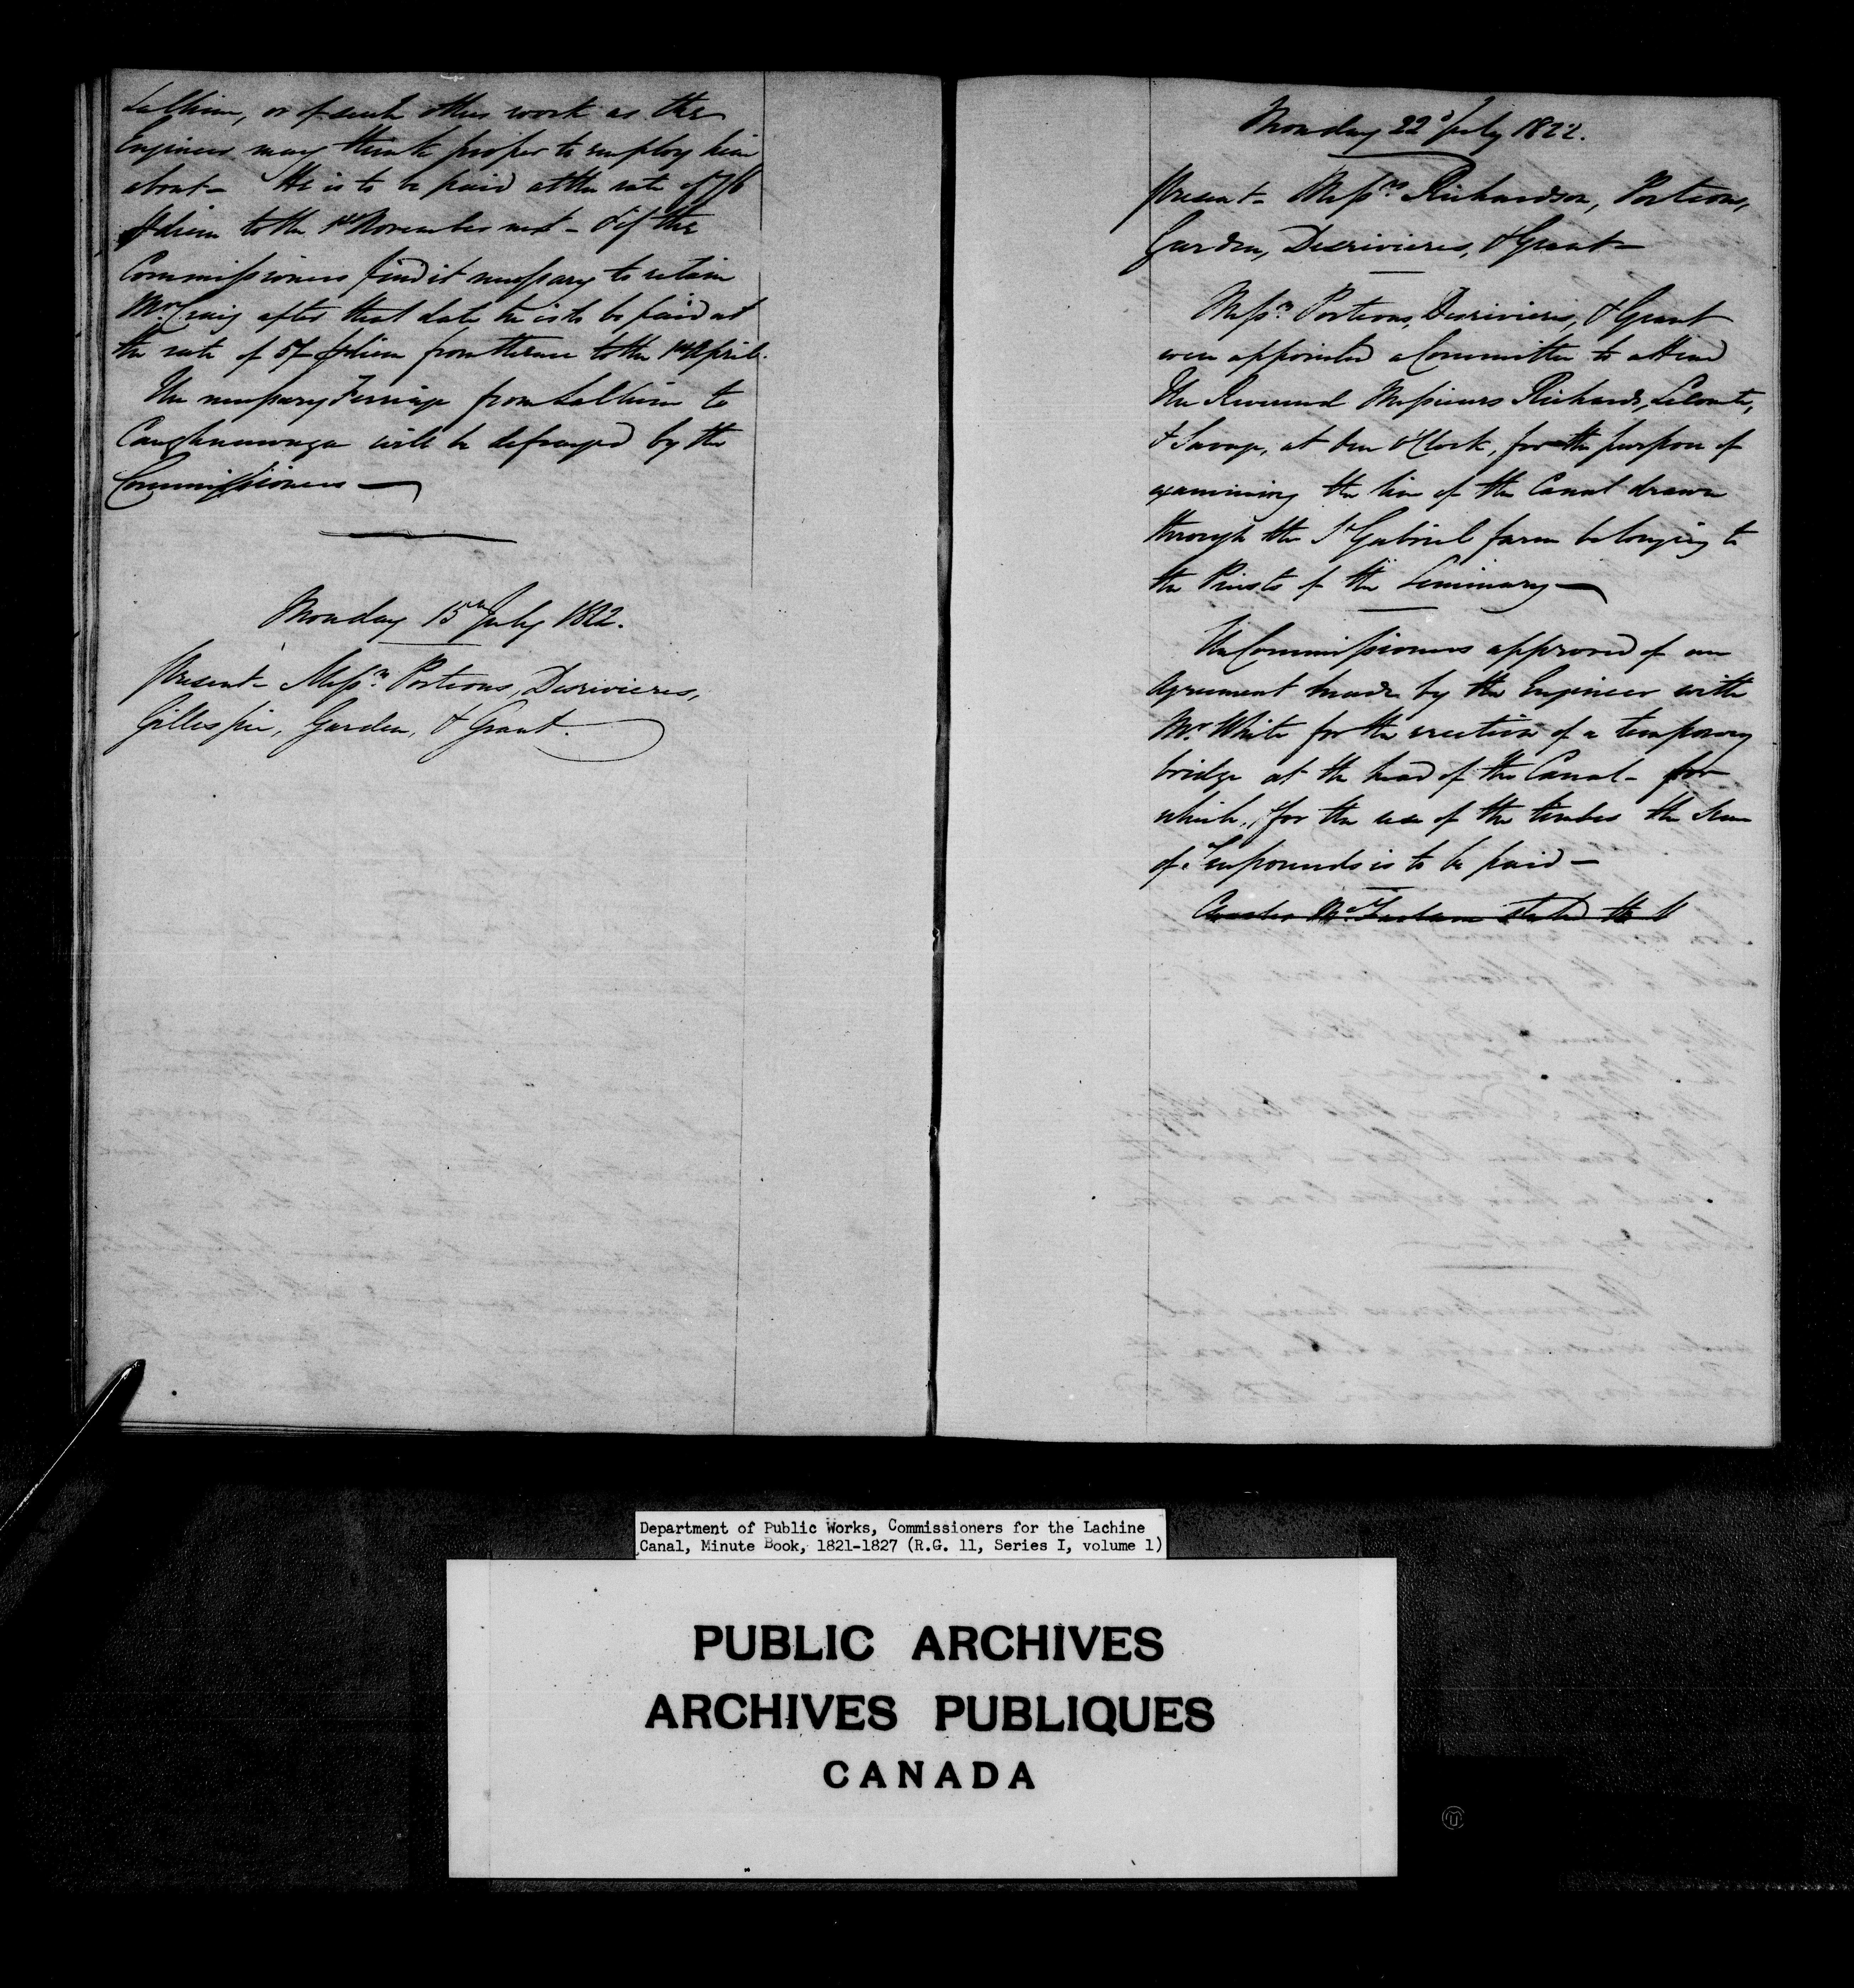 LaChine, or of such other work as the
Engineer may think proper to employ him
about— He is to be paid at the rate of 7/6
⅌ diem to the 1st November next— & if the
Commissioners find it necessary to retain
Mr. Craig after that date he is to be paid at
the rate of 5/- ⅌ diem from thence to the 1st April.
The necessary Ferriage from LaChine to
Caughnawaga will be defrayed by the
Commissioners—
Monday 15th July 1822.
Present— Messrs. Porteous, Desrivieres,
Gillespie, Garden, & Grant.
Monday 22d July 1822.
Present— Messrs. Richardson, Porteous,
Garden, Desrivieres, & Grant—
Messrs. Porteous, Desrivieres, & Grant
were appointed a Committee to attend
The Reverend Messieurs Richards, Leconte,
& Sauvage, at ten o'Clock, for the purpose of
examining the line of the Canal drawn
through the St. Gabriel farm belonging to
the Priests of the Seminary—
The Commissioners approved of an
agreement made by the Engineer with
Mr. White for the erection of a temporary
bridge at the head of the Canal— for
which, & for the use of the timber the Sum
of Ten pounds is to be paid—
stated the
Department of Public Works, Commissioners for the Lachine
Canal, Minute Book, 1821-1827 (R.G. 11, Series I, volume 1)
PUBLIC ARCHIVES
ARCHIVES PUBLIQUES
CANADA